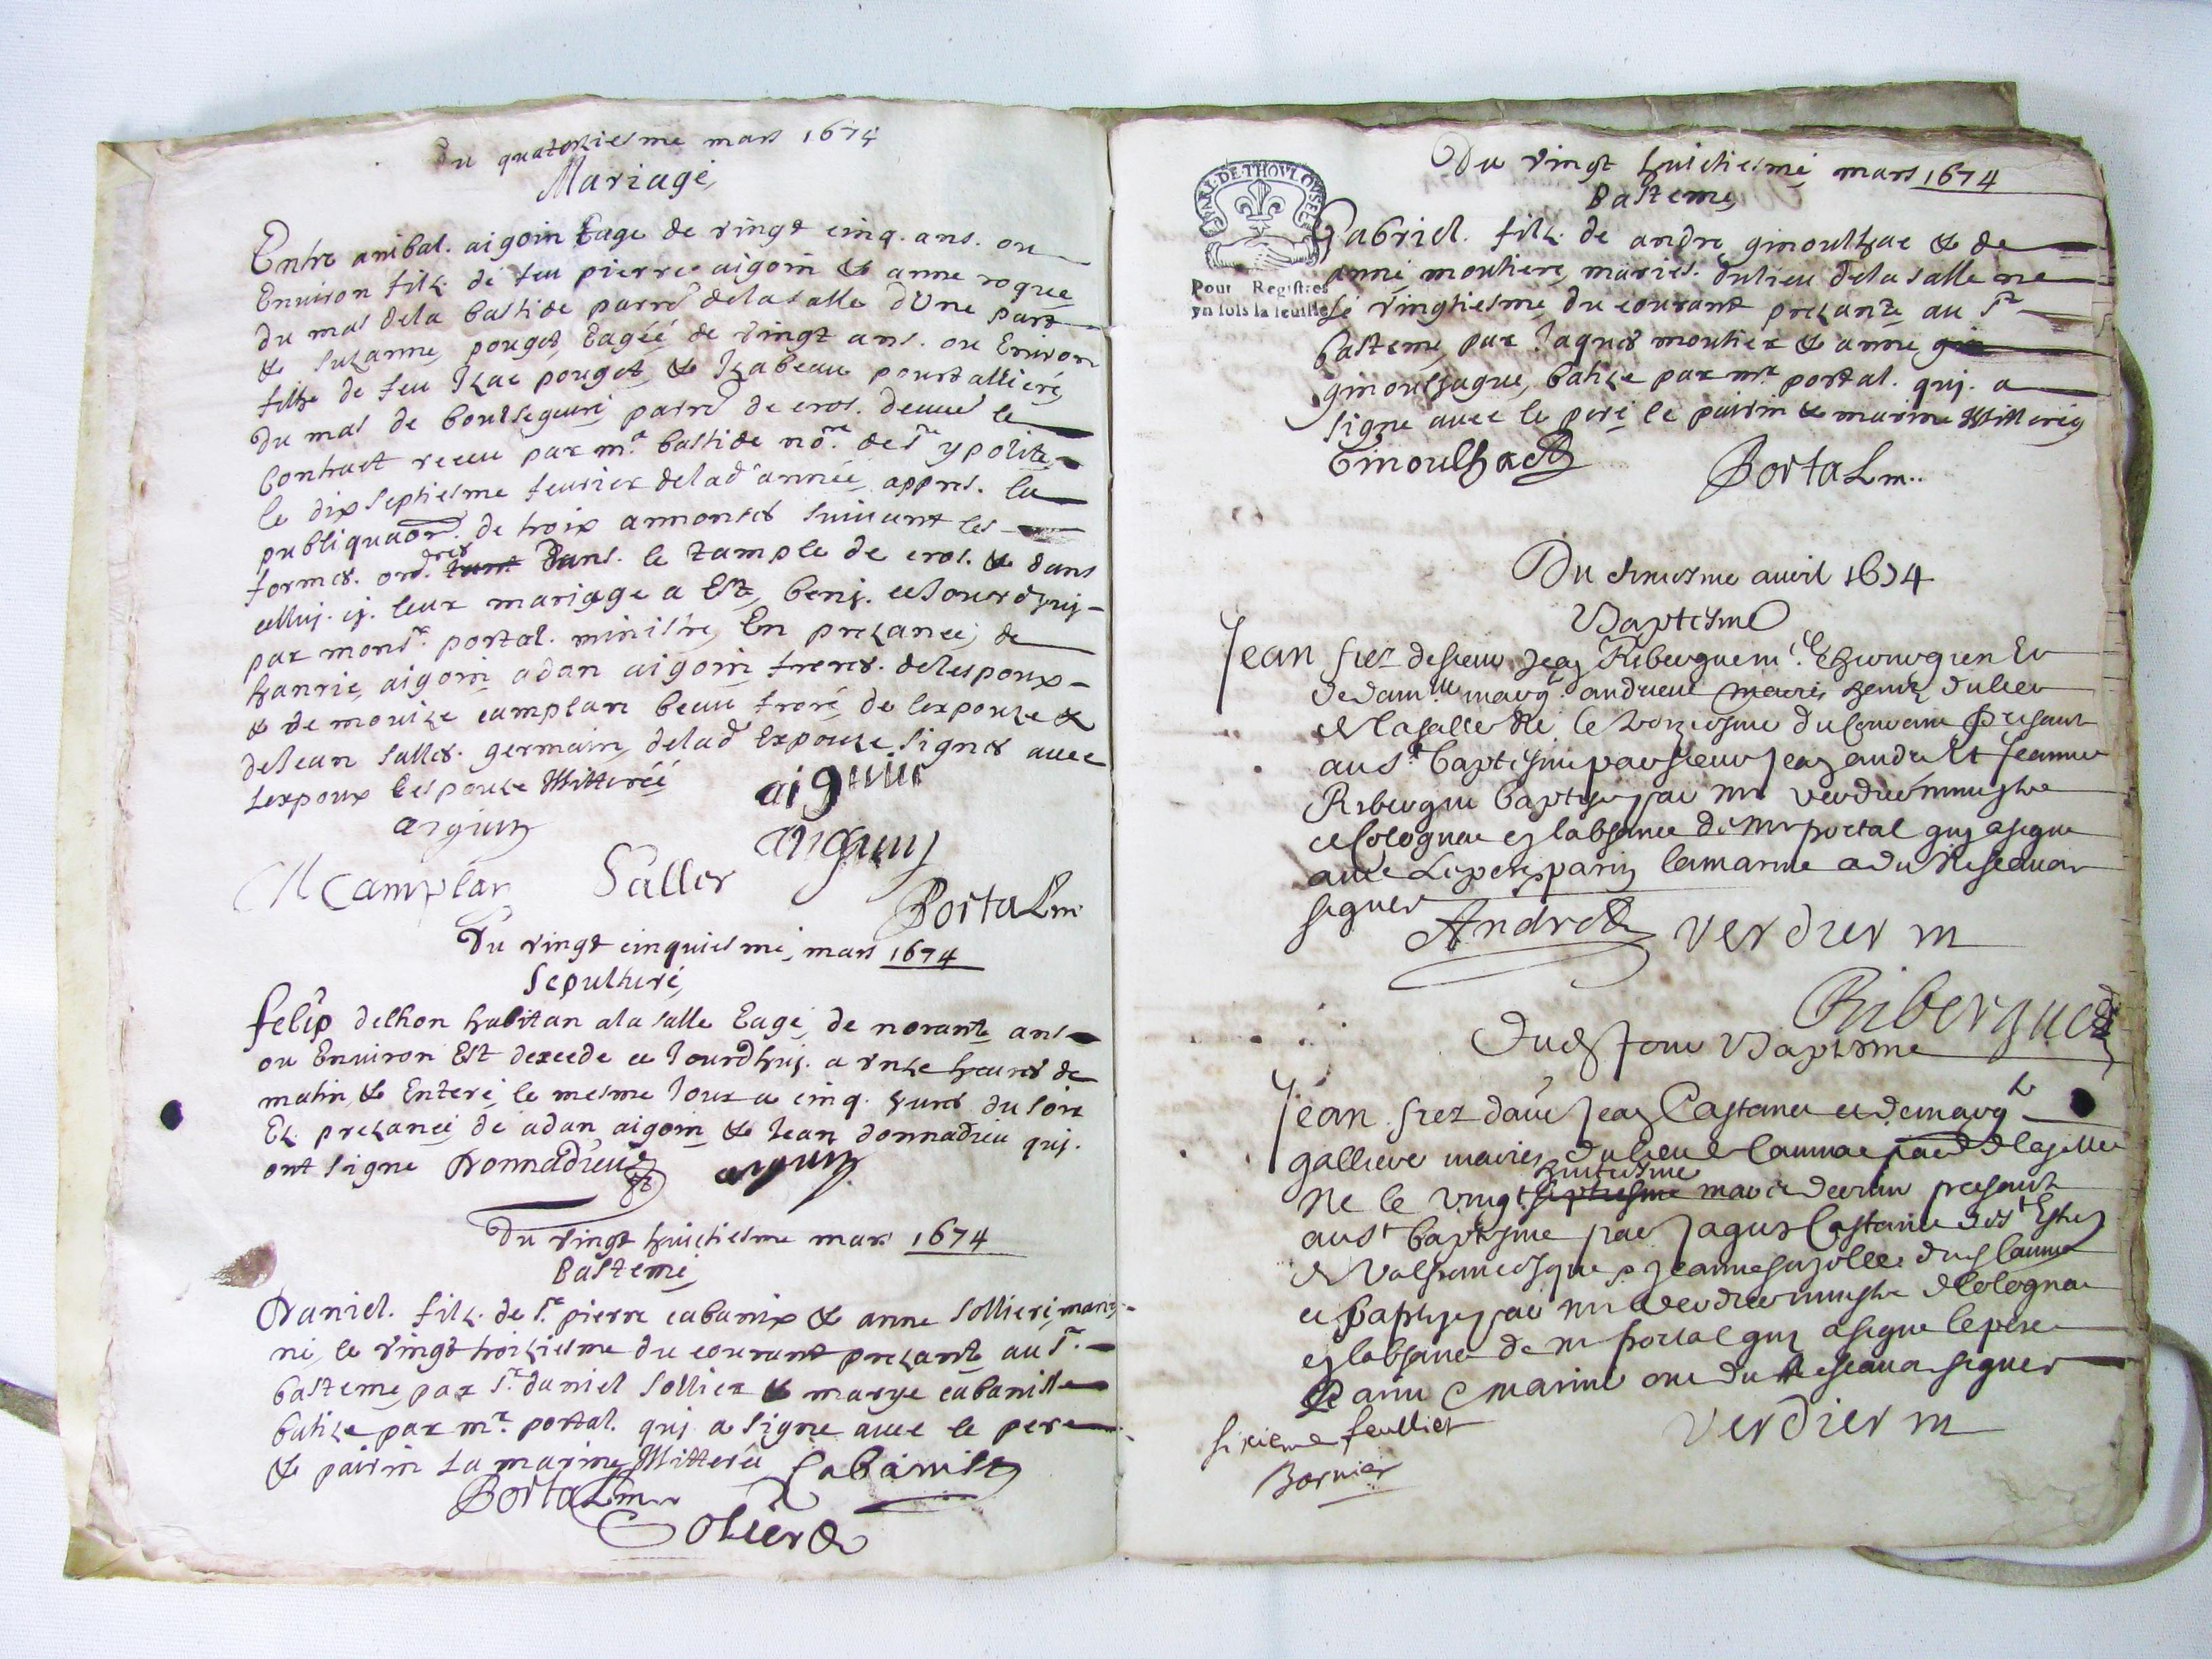 Du quatorziesme mars 1674
Mariage
Entre anibal. aigoin Eage de vingt cinq. ans. ou
Environ filz. de feu pierre aigoin & anne roque
du mas dela bastide parre delasalle dUne part
& suzanne pouget, Eagéé de vingt ans. ou Environ
filhe de feu Izac pouget & Izabeau pourtalliere
du mas de parre de cros. le
Contract receu par mr. bastide nore. de st ypolite
le dix septiesme feurier delad année, appres. la
publiquaon. de troix annonses suiuant les
formes. ord.res dans. le temple de cros. & dans
celluj. cj. leur mariage a Esté, benj. cejourdhuj
par monsr. portal. ministre, En prezance, de
hanric aigoin adan aigoin freres. delespoux
& de mouize camplan beau frere de lexpouze &
dejean salles. germain, delad Expouze, signes auec
Lexpoux Lespouze Illitterée
aigoin
aigoin
aigoin
M Camplan Salles
Portal m
Du vingt cinquiesme, mars 1674
Sepulture,
felip delhon habitan ala salle Eage, de norante ans
ou Environ Est decede ce Jourdhuj. a unze heures de
matin, & Enteré, le mesme Jour a cinq. hures du soir
En prezance de adan aigoin & Jean donnadieu quj.
ont signe Donnadieu aigoin
Du vingt huictiesme mars 1674
Basteme
Daniel. filz. de sr. pierre cabanix & anne sollieri, maries
ne, le vingt troiziesme du courant prezanté au st.
basteme par sr. daniel sollier & marye cabanisse
batize par mr. portal. quj a signe auec le pere
& pairin La marine, Illitterée Cabanis
Portal m
Solier
PARL. DE THOVLOVSE
Pour Registres
yn sols la feuille
Du vingt huictiesme mars 1674
Basteme
Gabriel. filz. de andre ginoulhac & de
anne moutiere, maries. dulieu dela salle ne
Le vingtiesme du courant prezante au st
basteme par Jaques moutier & anne
ginoulhague, batize par mr. portal. quj. a
signe auec le pere le pairin & marine Illitterés
Ginoulhac
Portal m..
Du auril 1674
Baptesme
Jean fiez desieur Jean Ribergue Chirurgien Et
de andrieue maries dulieu
de Lasalle né, le du presant
au st. baptesme par sieur Jean andre Et Jeanne
Ribergue baptise par mr verdier ministre
de Colognac en labsance de mr portal quj a signe
auec Le pere, parin, lamarine a dit ne scauoir
signer
Andre Verdier m
Ribergue
Dud Jour Baptesme
Jean fiez Jean Castanet et de margte
galliere maries, dulieu de parre de lasalle
Ne le vingt huitiesme mars presant
au st baptesme par Jaques Castanet
de Valfrancesque & Jeanne
et baptise par mr verdier ministre de Colognac
en labsance de mr portal quj a signe le pere
Parin & marine ont dit ne scauoir signer
Verdier m
sixieme feulliet
Bornier